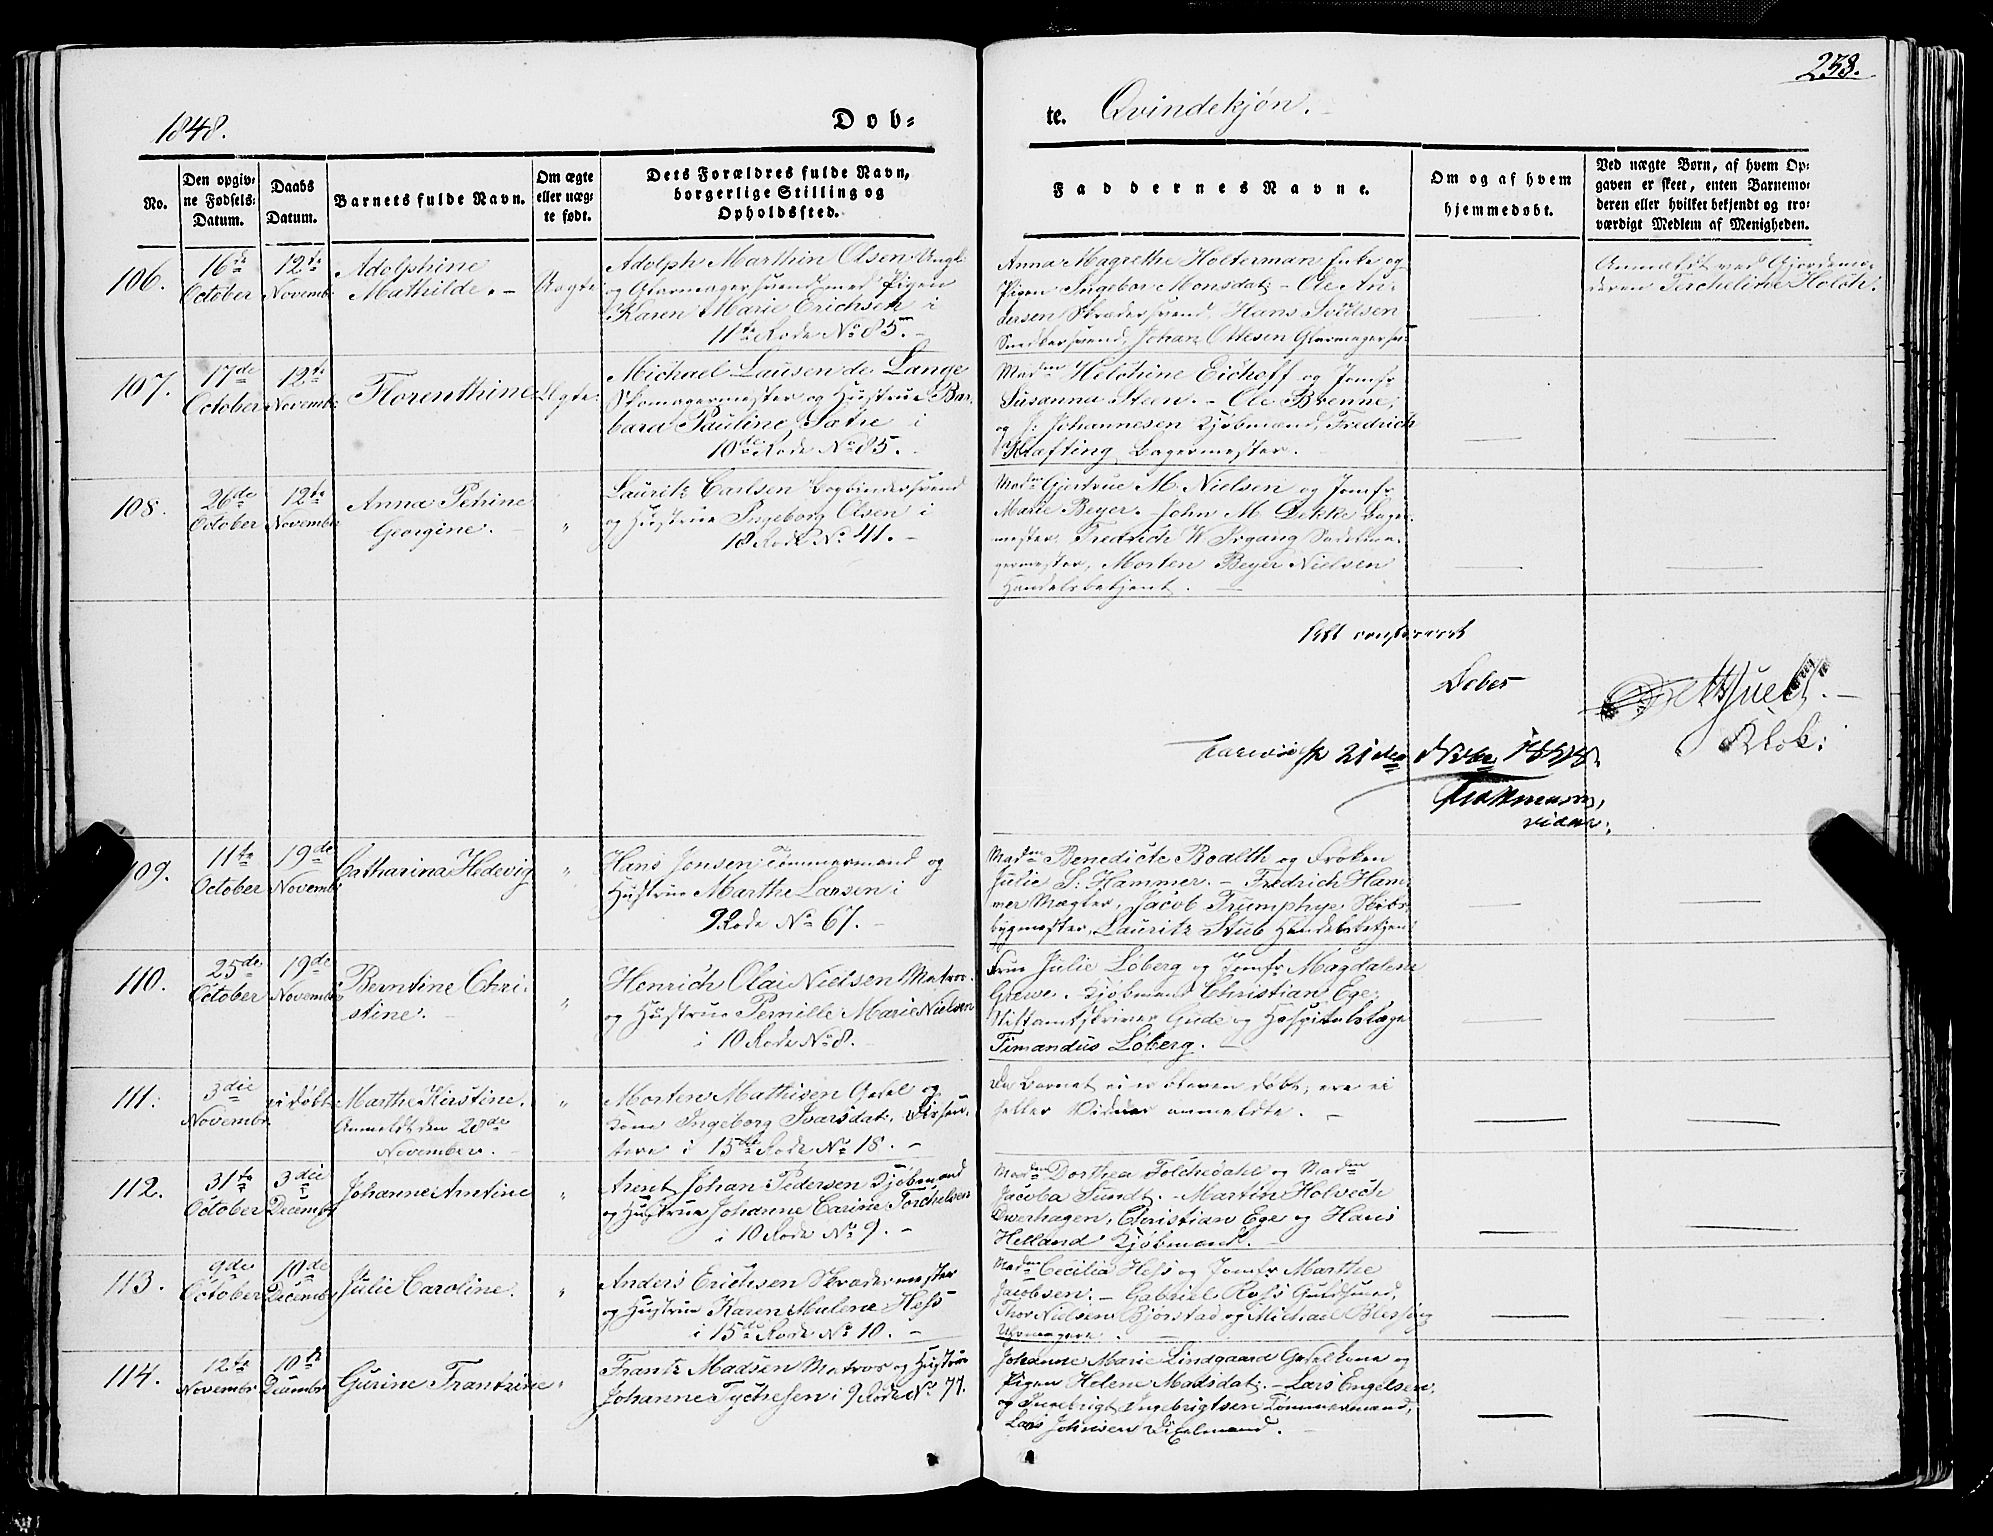 238.
1848.
Dob-
te. Qvindekjøn.
No.
Den opgiv-
ne Fødsels-
Datum.
Daabs
Datum.
Barnets fulde Navn.
Om ægte
eller uæg-
te født.
Dets Forældres fulde Navn,
borgerlige Stilling og
Opholdssted.
Faddernes Navne.
Om og af hvem
hjemmedøbt.
Ved uægte Børn, af hvem Op-
gaven er skeet, enten Barnemo-
deren eller hvilket bekjendt og tro-
værdigt Medlem af Menigheden.
106.
16te
October
12te
Novembr
Adolphine
Mathilde. –
Uægte
Adolph Marthin Olsen Ungk.
og Glarmagersvend med Pigen
Karen Marie Erichsen i
11te Rode No 85. –
Anna Magrethe Holterman Enke og
Pigen Ingebor Monsdat: – Ole An-
dersen Skrædersvend, Hans Iversen
Snedkersvend, Johan Ottesen Glarmagersv:
Anmeldt ved Gjordemo-
deren Tercheline Holch.
107.
17de
October
12te
Novembr
Florenthine
Ægte
Michael Lausen de Lange
Skomagermester og Hustrue Bar-
bara Pauline Sætre i
10de Rode No 85. –
Madm Helchine Eichoff og Jomfr
Susanna Steen. – Ole Brenne,
og J: Johannesen Kjøbmænd, Fredrich
Klafting Bagermester.
108.
26de
October
12te
November
Anna Petrine
Georgine. –
"
Lauritz Carlsen Bogbindersvend
og Hustrue Ingeborg Olsen i
18 Rode No 41. –
Madm Gjertrue M. Nielsen og Jomfr
Marie Beyer. – John M. Dekke Bager-
mester, Fredrich W. Irgang Sadelma-
germester, Morten Beyer Nielsen
Handelsbetjent. –
21de Novbr 1848.
Klok:
109.
11te
October
19de
Novembr
Catharina Hedevig
"
Hans Jonsen Tømmermand og
Hustrue Marthe Larsen i
22 Rode No 67. –
Madm Benedicte Boalth og Frøken
Julie S: Hammer. – Fredrich Ham-
mer Mægler, Jacob Trumphye Skibs-
bygmester, Lauritz Stub Handelsbetjen:
110.
25de
October
19de
November
Berntine Chri-
stine. –
"
Henrich Olai Nielsen Matros
og Hustrue Pernille Marie Nielsen
i 10 Rode No 8. –
Frue Julie Løberg og Jomfr Magdalene
Greve. Kjøbmænd Christian Ege,
Stiftamtskriver Gude og Hospitalslæge
Timandus Løberg. –
111.
3die
Novembr
ei døbt
Marthe Kirstine.
Anmeldt den 20de
November. –
"
Morten Mathisen Gesel og
Kone Ingeborg Ivarsdat: Dissen-
tere i 15de Rode No 18. –
Da Barnet ei er bleven døbt, ere ei
heller Vidner anmeldte. –
112.
31te
October
3die
Decembr
Johanne Arntine
"
Arent Johan Pedersen Kjøbmand
og Hustrue Johanne Carine Torchelsen
i 10 Rode No 9. –
Madm Dorthea Tolchedahl og Madm
Jacoba Sundt. – Martin Holvech
Dverhagen, Christian Ege og Hans
Helland Kjøbmænd.
113.
9de
October
10de
Decembr
Julie Caroline.
"
Anders Erichsen Skrædermester
og Hustrue Karen Malene Hess
i 15de Rode No 10. –
Madm Cecilia Hess og Jomfr Marthe
Jacobsen. – Gabriel Ross Guldsmed,
Thor Nielsen Bjørstad og Michael Blessing
Uhrmagere. –
114.
12te
Novembr
10de
Decembr
Gurine Frantzine
"
Frantz Madsen Matros og Hustrue
Johanne Tychesen i 9 Rode No 77.
Johanne Marie Lindgaard Gesel Kone og
Pigen Helene Madsdat: – Lars Engelsen
og Ingebrigt Ingebrigtsen Tømmermænd,
Lars Johnsen